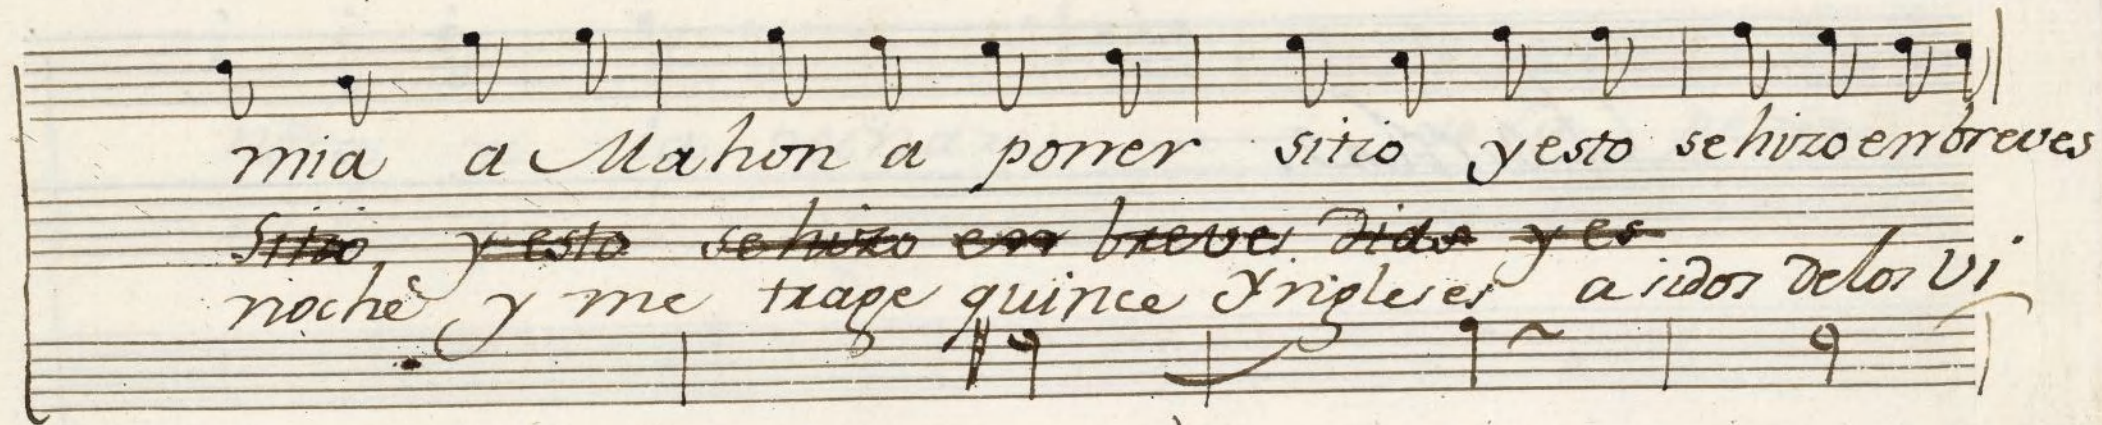 mia a Mahon a poner sitio y esto se hizo en breves
Sitio y esto se hizo en breves dias y es
noche y me trage quince Yngleses asidos de los vi